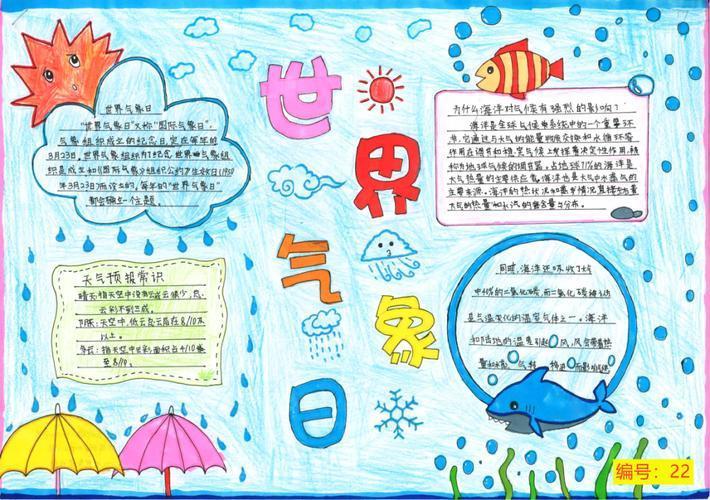 世界气象日
世界气象日
"世界气象日"又称"国际气象日",
气象组织成立的纪念日,定在每年的
3月23日。世界气象组织为了纪念世界气象组
织是成立和《国际气象组织公约》产生效日(1950
年3月23日)而设立的,每年的"世界气象日"
都会确立一个主题。
天气预报常识
晴天:指天空中没有云或云很少,
云彩不到三成。
阴天:天空中,低云总云层在8/10
以上。
多云:指天空中云彩面积占4/10
至8/10。
为什么海洋对气候有强烈的影响?
海洋是全球气候系统中的一个重要环
节,它通过与大气的能量物质交换和水循环等
作用在调节和稳定气候上发挥着决定性作用,被称
为地球气候的调节器。占地球71%的海洋是
大气热量的主要供应者。海洋也是大气中水蒸气的
主要来源。海洋的热状况和蒸发情况直接
大气的热量和水汽的含量与分布。
同时,海洋还吸收了大
中40%的二氧化碳,而二氧化碳被认为
是气温变化的温室气体之一。海洋
和陆地的温差引起风,风会带着热
量和水
编号:22